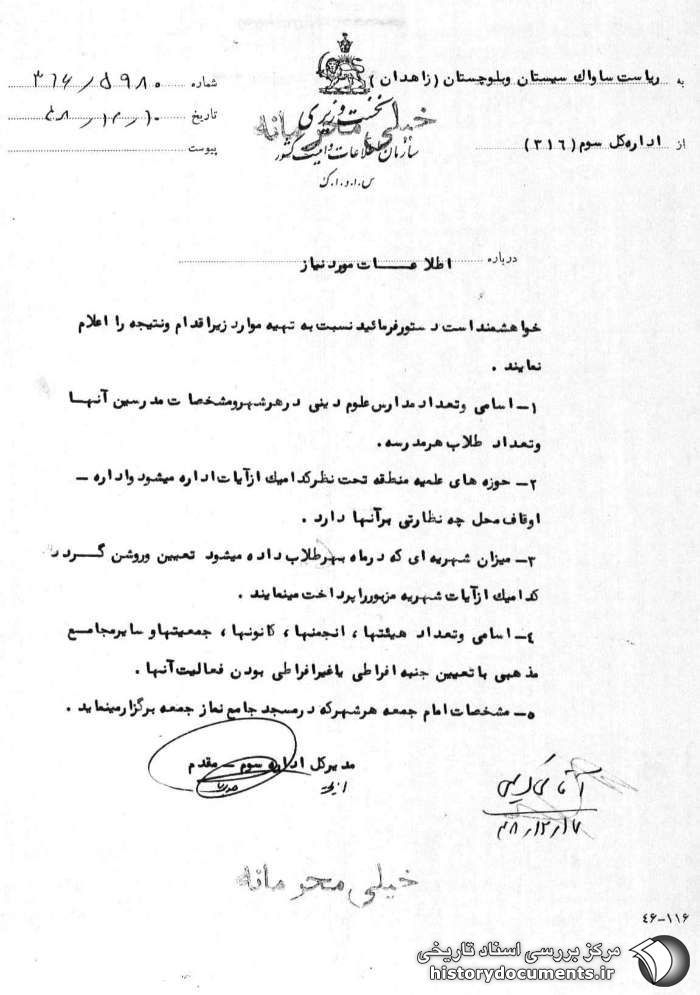 به ریاست ساواک سیستان وبلوچستان (زاهدان)
از اداره کل سوم (۳۱۶)
نخست وزیری
سازمان اطلاعات و امنیت کشور
س.ا.و.ا.ک
خیلی محرمانه
شماره
تاریخ
پیوست
درباره اطلاعات مورد نیاز
خواهشمند است دستور فرمائید نسبت به تهیه موارد زیر اقدام ونتیجه را اعلام
نمایند .
۱- اسامی وتعداد مدارس علوم دینی در هر شهر ومشخصات مدرسین آنها
وتعداد طلاب هر مدرسه .
۲- حوزه های علمیه منطقه تحت نظر کدامیک از آیات اداره میشود واداره -
اوقاف محل چه نظارتی بر آنها دارد .
۳- میزان شهریه ای که در ماه بهر طلاب داده میشود تعیین وروشن گردد
کدامیک از آیات شهریه مزبور را پرداخت مینمایند .
۴- اسامی وتعداد هیئتها ، انجمنها ، کانونها ، جمعیتها و سایر مجامع
مذهبی با تعیین جنبه افراطی یا غیر افراطی بودن فعالیت آنها .
۵- مشخصات امام جمعه هر شهر که در مسجد جامع نماز جمعه برگزار مینماید .
مدیر کل اداره سوم - مقدم
خیلی محرمانه
۴۶-۱۱۶
مرکز بررسی اسناد تاریخی
historydocuments.ir